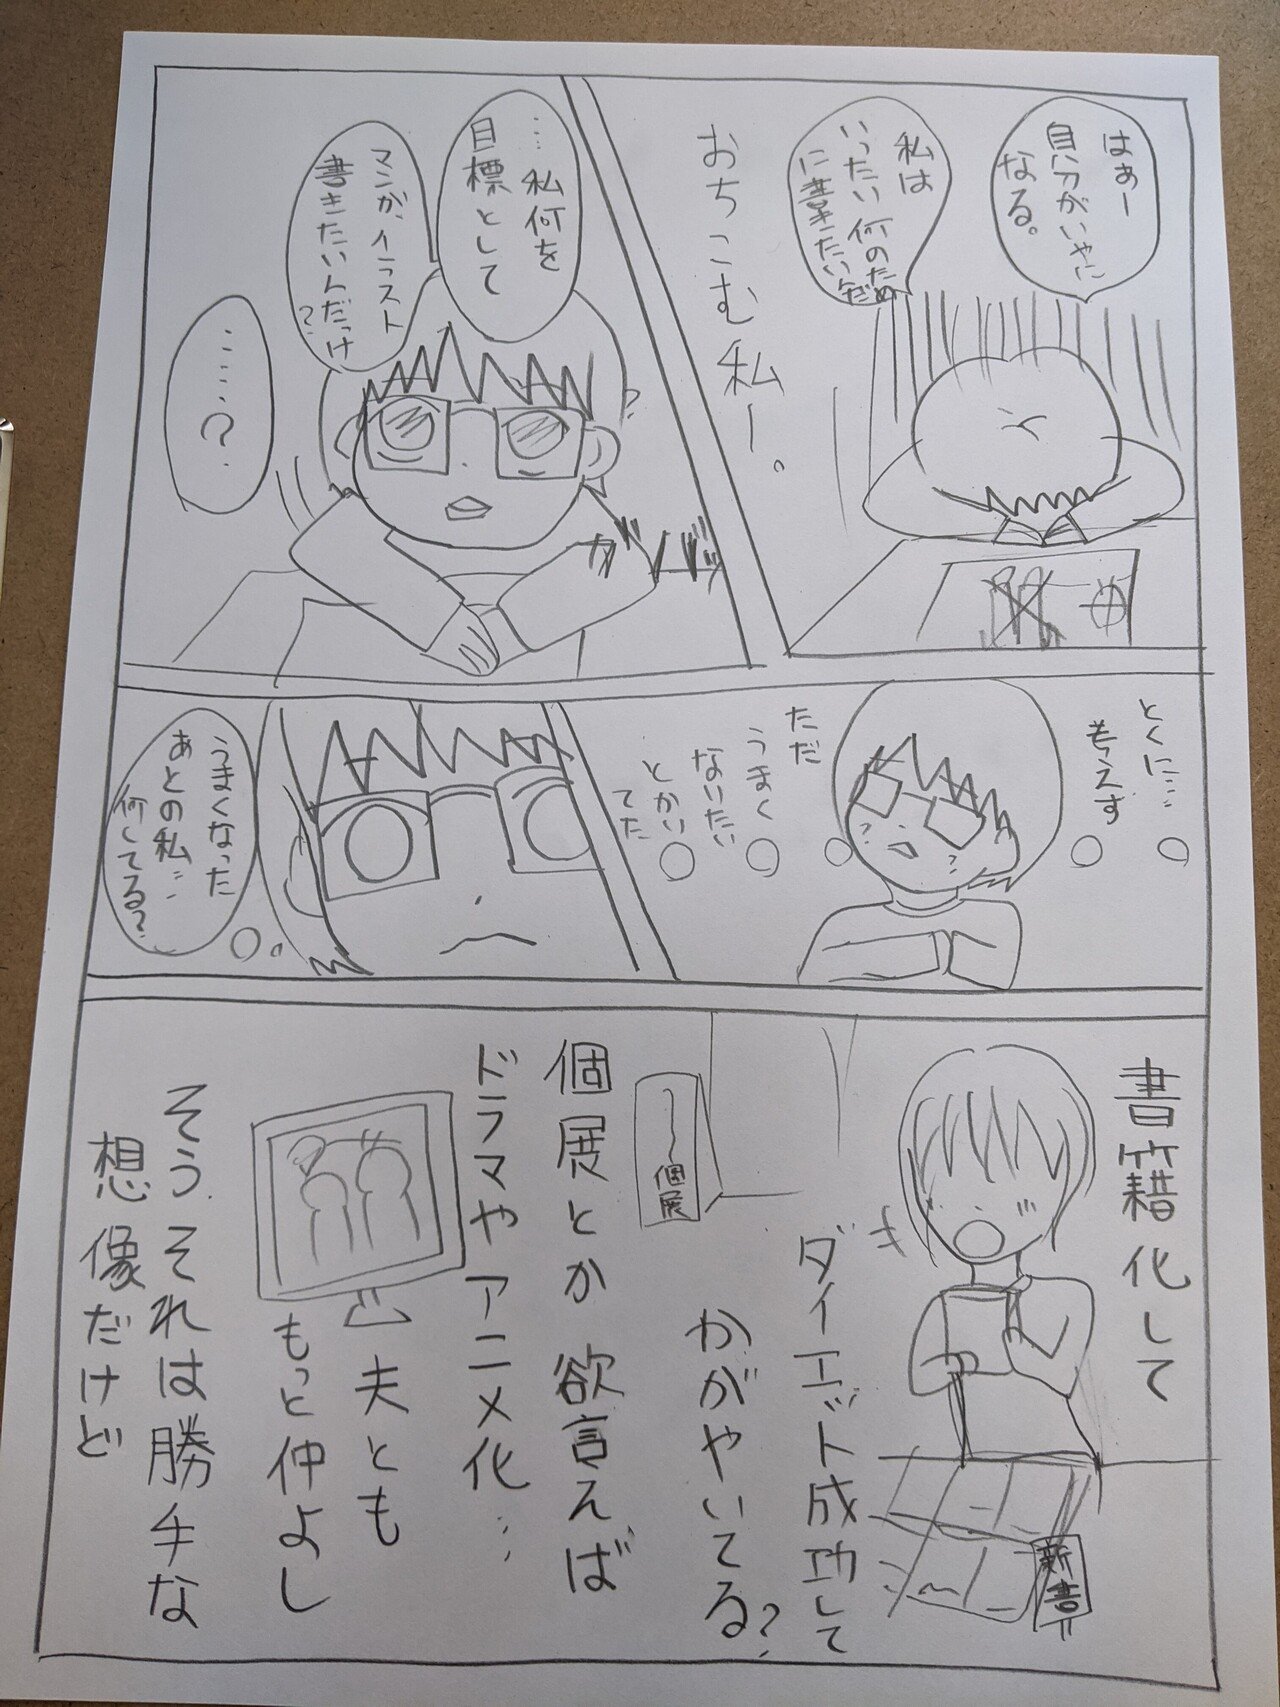 はぁー
自分がいやに
なる。
私は
いったい何のため
に書きたいんだ
おちこむ私ー。
……私何を
目標として
マンガ、イラスト
書きたいんだっけ
?
……?
ガバッ
とくに…
考えず
ただ
うまく
なりたい
とかい
てた
うまくなった
あとの私…
何してる?
書籍化して
新書
ダイエット成功して
かがやいてる?
個展
個展とか欲言えば
ドラマやアニメ化…
夫とも
もっと仲よし
そうそれは勝手な
想像だけど